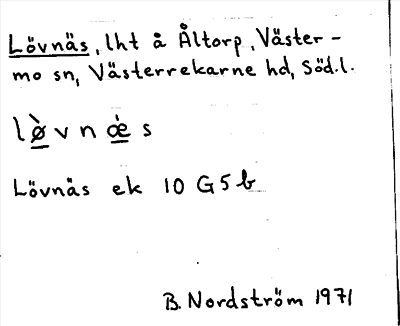 Lövnäs, lht å Åltorp, Väster-
mo sn, Västerrekarne hd, Söd.l.
l ø̲̀ v n æ̲̀ s
Lövnäs ek 10 G5b
B. Nordström 1971